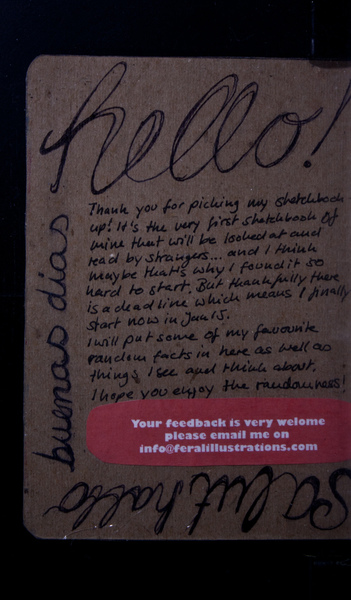 hello!
Thank you for picking my sketchbook
up! It's the very first sketchbook of
mine that will be looked at and
read by strangers... and I think
maybe that's why I found it so
hard to start. But thankfully there
is a deadline which means I finally
start now in Jan 15.
I will put some of my favourite
random facts in here as well as
things I see and think about.
I hope you enjoy the randomness!
buenas dias
Your feedback is very welome
please email me on
info@feralillustrations.com
salut hallo